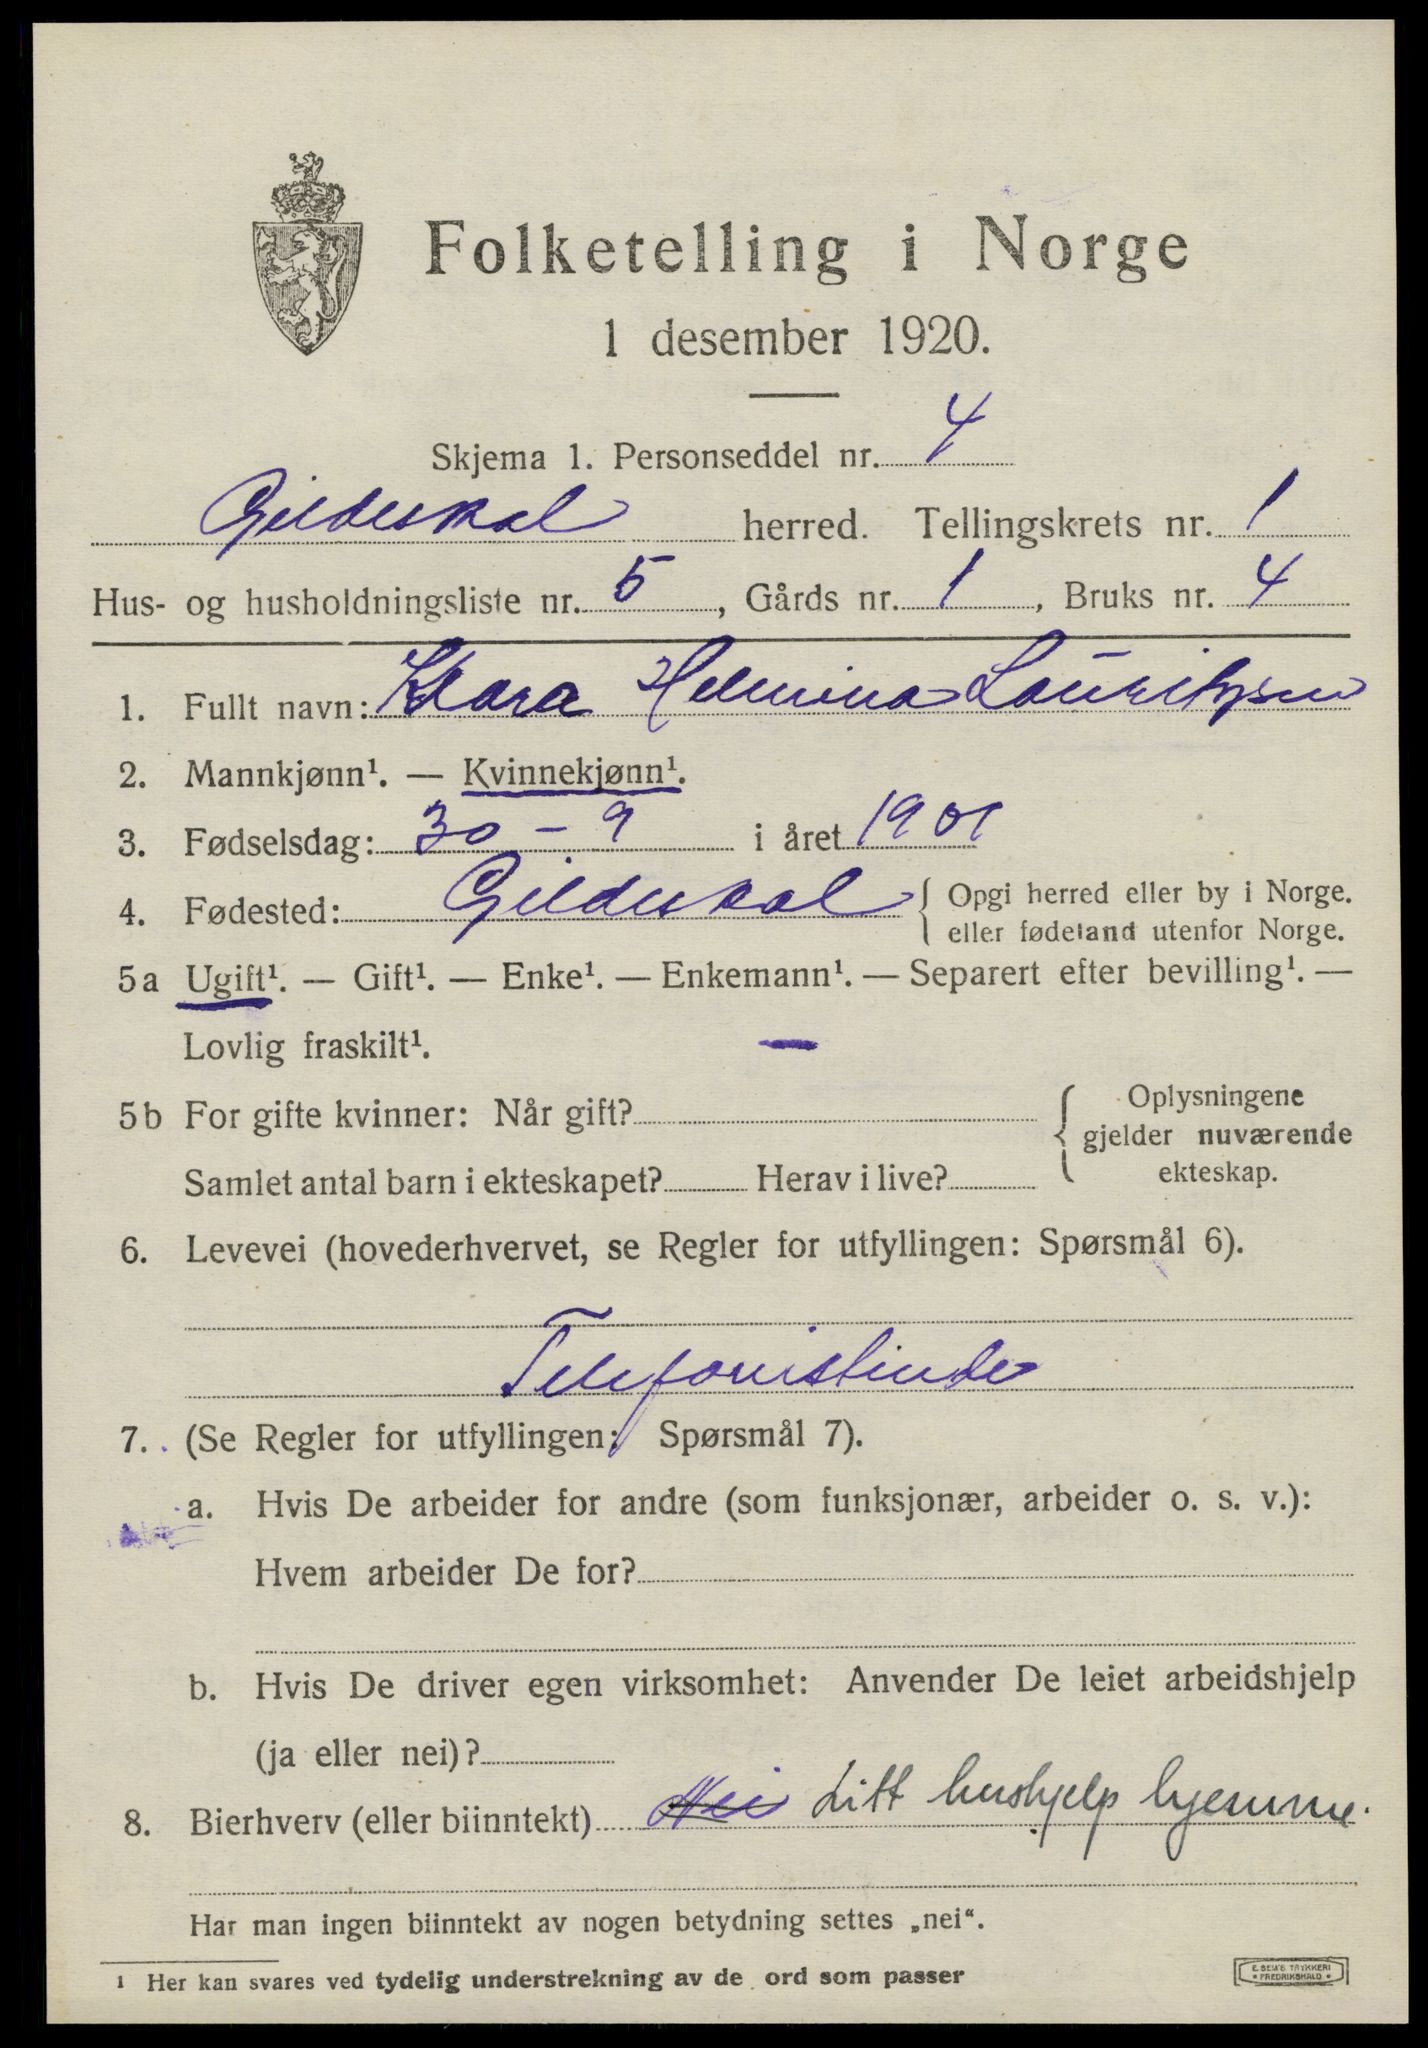 Folketelling i Norge
1 desember 1920.
Skjema 1. Personseddel nr. 4
Gildeskal herred. Tellingskrets nr. 1
Hus- og husholdningsliste nr. 5, Gårds nr. 1, Bruks nr. 4
1. Fullt navn: Klara Helmina Lauritzsen
2. Mannkjønn¹. — Kvinnekjønn¹.
3. Fødselsdag: 30 – 9 i året 1901
4. Fødested: Gildeskal { Opgi herred eller by i Norge.
eller fødeland utenfor Norge.
5a Ugift¹. — Gift¹. — Enke¹. — Enkemann¹. — Separert efter bevilling¹. —
Lovlig fraskilt¹. —
5b For gifte kvinner: Når gift? { Oplysningene
gjelder nuværende
ekteskap.
Samlet antal barn i ekteskapet? Herav i live?
6. Levevei (hovederhvervet, se Regler for utfyllingen: Spørsmål 6).
Telefonistinde
7. (Se Regler for utfyllingen: Spørsmål 7).
a. Hvis De arbeider for andre (som funksjonær, arbeider o. s. v.):
Hvem arbeider De for?
b. Hvis De driver egen virksomhet: Anvender De leiet arbeidshjelp
(ja eller nei)?
8. Bierhverv (eller biinntekt) Nei Litt hushjelp hjemme.
Har man ingen biinntekt av nogen betydning settes „nei“.
¹ Her kan svares ved tydelig understrekning av de ord som passer
E. SEM'S TRYKKERI
• FREDRIKSHALD •